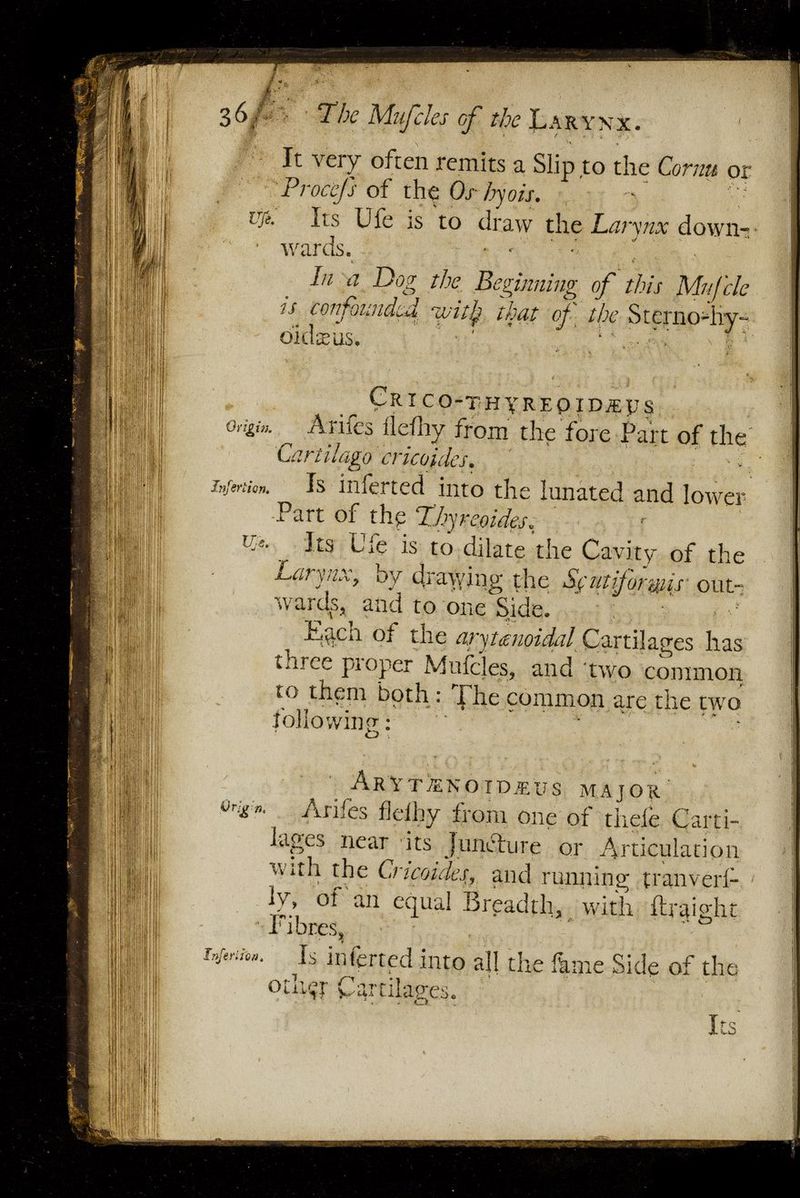 36 The Muſcles of the LARYNX.
It very often remits a Slip to the Cornu or
Proceſs of the Os hyois.
Uſe. Its Uſe is to draw the Larynx down-
wards.
In a Dog the Beginning of this Muſcle
is confounded with that of the Sterno-hy-
oidæus.
CRICO-THYREOIDÆUS
Origin. Ariſes fleſhy from the fore Part of the
Cartilago cricoides.
Inſertion. Is inſerted into the lunated and lower
Part of the Thyreoides.
Uſe. Its Uſe is to dilate the Cavity of the
Larynx, by drawing the Scutiformis out-
wards, and to one Side.
Each of the arytænoidal Cartilages has
three proper Muſcles, and two common
to them both: The common are the two
following:
ARYTÆNOIDÆUS MAJOR
Origin. Ariſes fleſhy from one of theſe Carti-
lages near its Juncture or Articulation
with the Cricoides, and running tranverſ-
ly, of an equal Breadth, with ſtraight
Fibres,
Inſertion. Is inſerted into all the ſame Side of the
other Cartilages.
Its